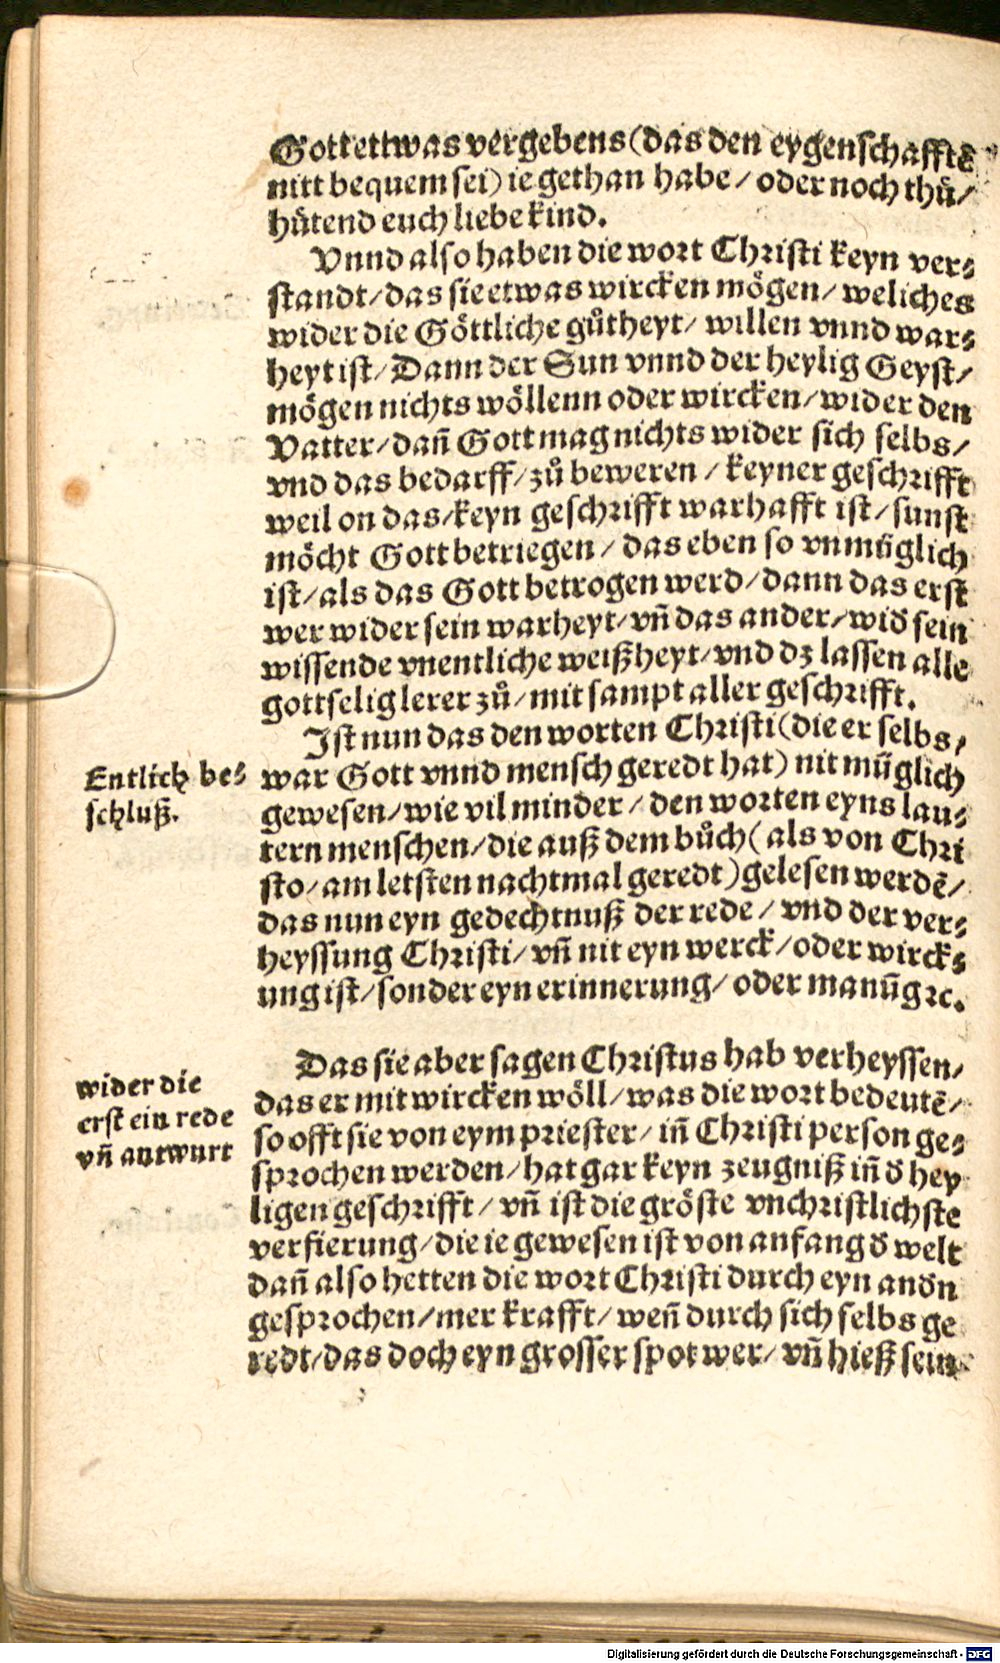 Gott ettwas vergebens (das den eygenschafftē
nitt bequem sei) ie gethan habe / oder noch thuͤ /
huͤtend euch liebe kind.
Vnnd also haben die wort Christi keyn ver⸗
standt / das sie etwas wircken mögen / weliches
wider die Göttliche guͦtheyt / willen vnnd war⸗
heyt ist / Dann der Sun vnnd der heylig Geyst /
mögen nichts wöllenn oder wircken / wider den
Vatter / dañ Gott mag nichts wider sich selbs /
vnd das bedarff / zuͦ beweren / keyner geschrifft
weil on das / keyn geschrifft warhafft ist / sunst
möcht Gott betriegen / das eben so vnmüglich
ist / als das Gott betrogen werd / dann das erst
wer wider sein warheyt / vñ das ander / wiď sein
wissende vnentliche weißheyt / vnd dz lassen alle
gottselig lerer zuͦ / mit sampt aller geschrifft.
Entlich be⸗
schluß.
Ist nun das den worten Christi (die er selbs /
war Gott vnnd mensch geredt hat) nit müglich
gewesen / wie vil minder / den worten eyns lau⸗
tern menschen / die auß dem buͦch (als von Chri
sto / am letsten nachtmal geredt) gelesen werdē /
das nun eyn gedechtnuß der rede / vnd der ver⸗
heyssung Christi / vñ nit eyn werck / oder wirck⸗
ung ist / sonder eyn erinnerung / oder manūg ꝛc.
wider die
erst ein rede
vñ antwurt
Das sie aber sagen Christus hab verheyssen /
das er mit wircken wöll / was die wort bedeutē /
so offt sie von eym priester / iñ Christi person ge⸗
sprochen werden / hat gar keyn zeugniß iñ ď hey
ligen geschrifft / vñ ist die gröste vnchristlichste
verfierung / die ie gewesen ist von anfang ď welt
dañ also hetten die wort Christi durch eyn anďn
gesprochen / mer krafft / weñ durch sich selbs ge
redt / das doch eyn grosser spot wer / vñ hieß sein
Digitalisierung gefördert durch die Deutsche Forschungsgemeinschaft - DFG